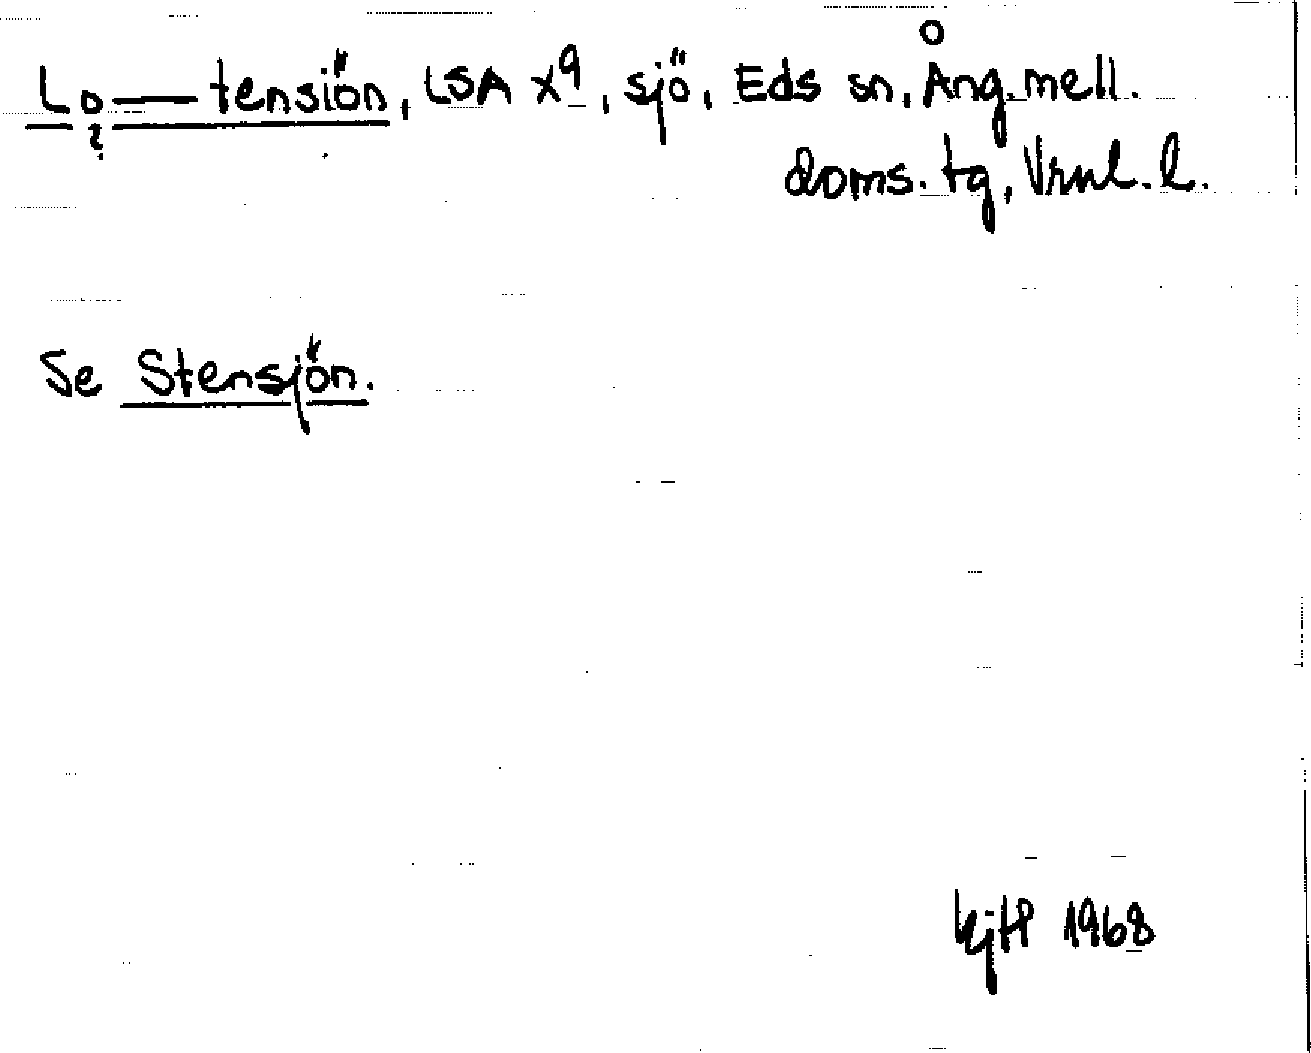 Lo—tensiön, LSA X9, sjö, Eds sn, Ång. mell.
?
doms. tg, Vrml. l.
Se Stensjön.
KjHP 1968